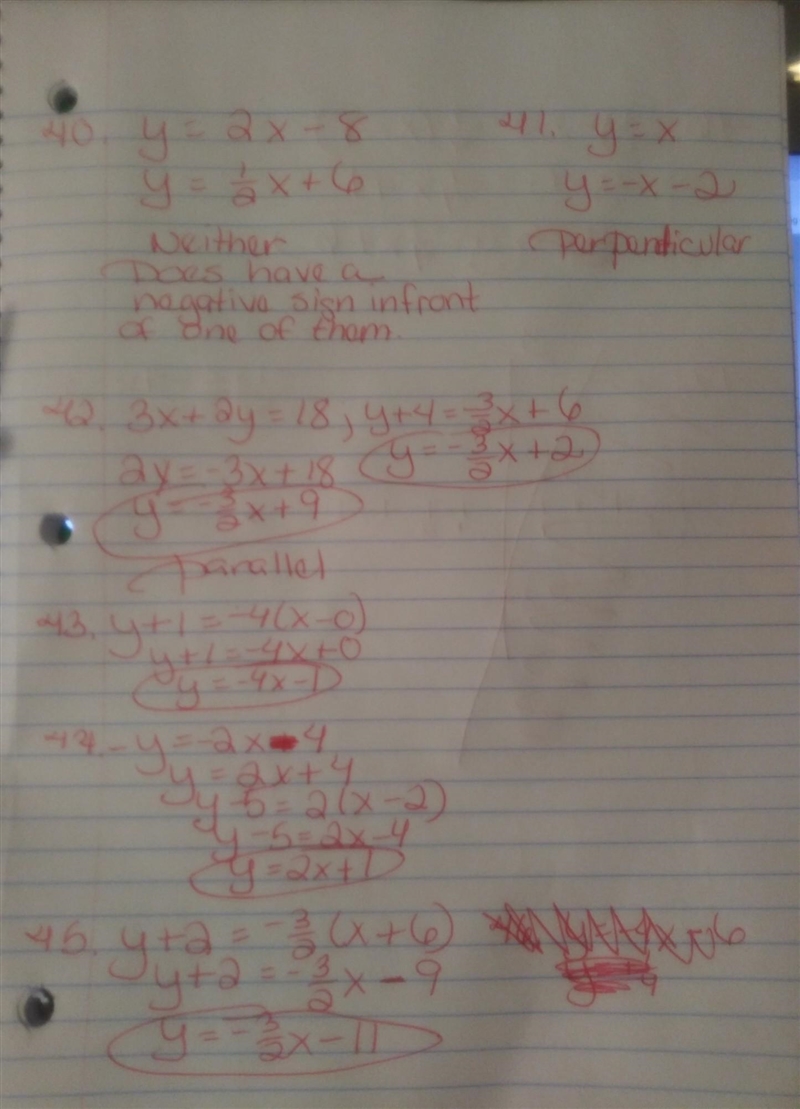 40. y = 2x - 8
y = 1/2 x + 6
Neither
Does have a
negative sign infront
of one of them.
41. y = x
y = -x - 2
perpendicular
42. 3x + 2y = 18, y + 4 = -3/2 x + 6
2y = -3x + 18 y = -3/2 x + 2
y = -3/2 x + 9
parallel
43. y + 1 = -4(x - 0)
y + 1 = -4x + 0
y = -4x - 1
44. -y = -2x - 4
y = 2x + 4
y - 5 = 2(x - 2)
y - 5 = 2x - 4
y = 2x + 1
45. y + 2 = -3/2 (x + 6)
y + 2 = -3/2 x - 9
y = -3/2 x - 11